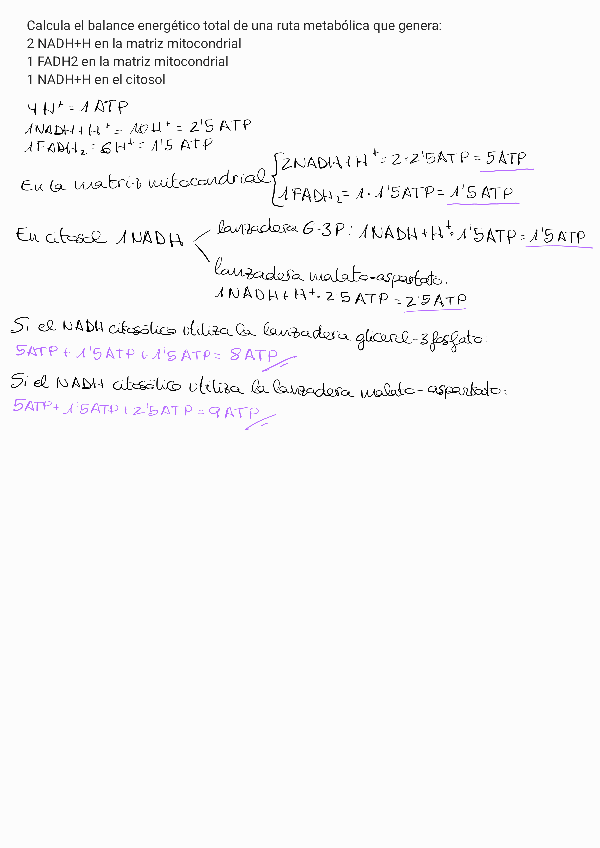 Calcula el balance energético total de una ruta metabólica que genera:
2 NADH+H en la matriz mitocondrial
1 FADH2 en la matriz mitocondrial
1 NADH+H en el citosol
4 H⁺ = 1 ATP
1 NADH+H⁺ = 10 H⁺ = 2'5 ATP
1 FADH₂ = 6 H⁺ = 1'5 ATP
En la matriz mitocondrial
2 NADH+H⁺ = 2 · 2'5 ATP = 5 ATP
1 FADH₂ = 1 · 1'5 ATP = 1'5 ATP
En citosol 1 NADH
lanzadera G-3P: 1 NADH+H⁺ · 1'5 ATP = 1'5 ATP
lanzadera malato-aspartato.
1 NADH+H⁺ · 2 5 ATP = 2'5 ATP
Si el NADH citosólico utiliza la lanzadera glicerol-3 fosfato.
5 ATP + 1'5 ATP + 1'5 ATP = 8 ATP
Si el NADH citosólico utiliza la lanzadera malato-aspartato:
5 ATP + 1'5 ATP + 2'5 ATP = 9 ATP